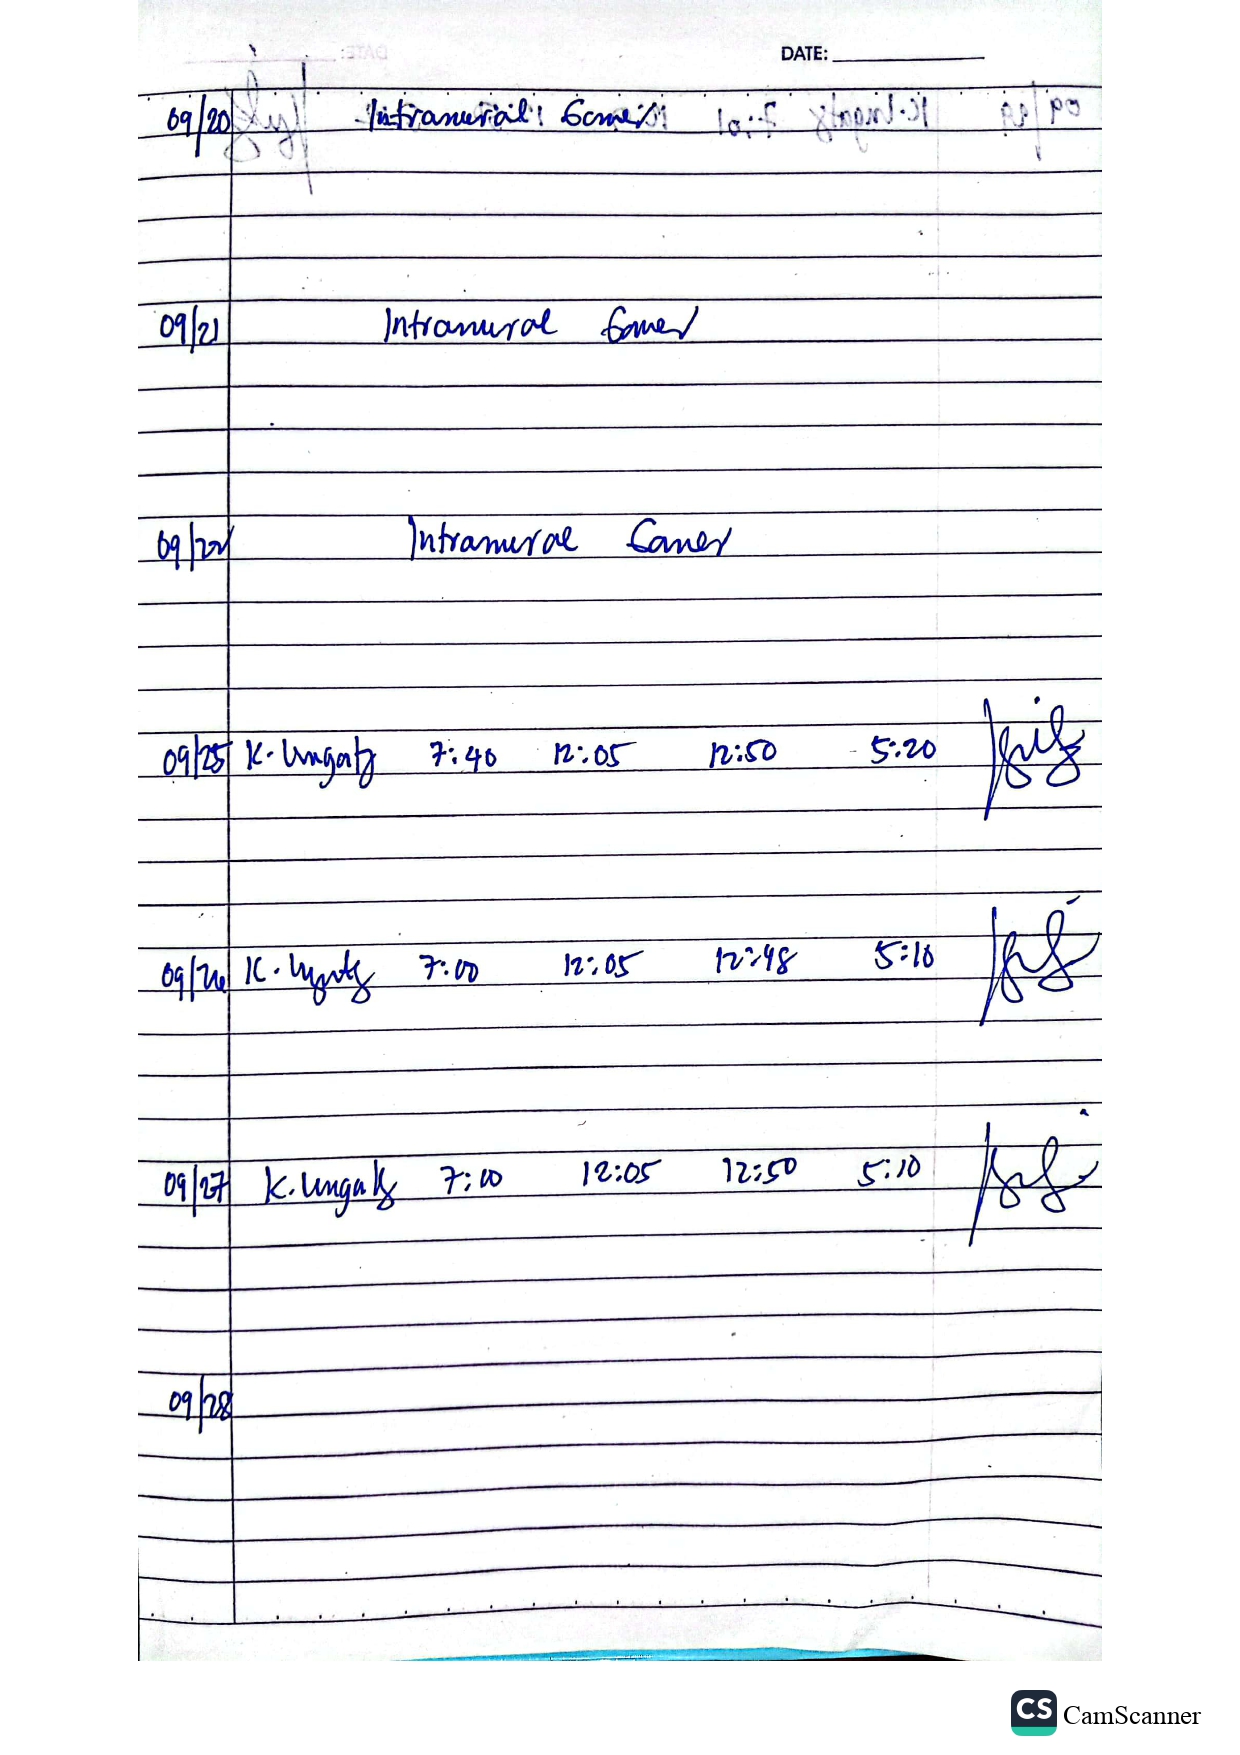 DATE:
09/20 Intramural Games
09/21 Intramural Games
09/22 Intramural Games
09/25 K. Ungatz 7:40 12:05 12:50 5:20
09/26 K. 7:00 12:05 12:48 5:10
09/27 K. 7:00 12:05 12:50 5:10
09/28
CS CamScanner